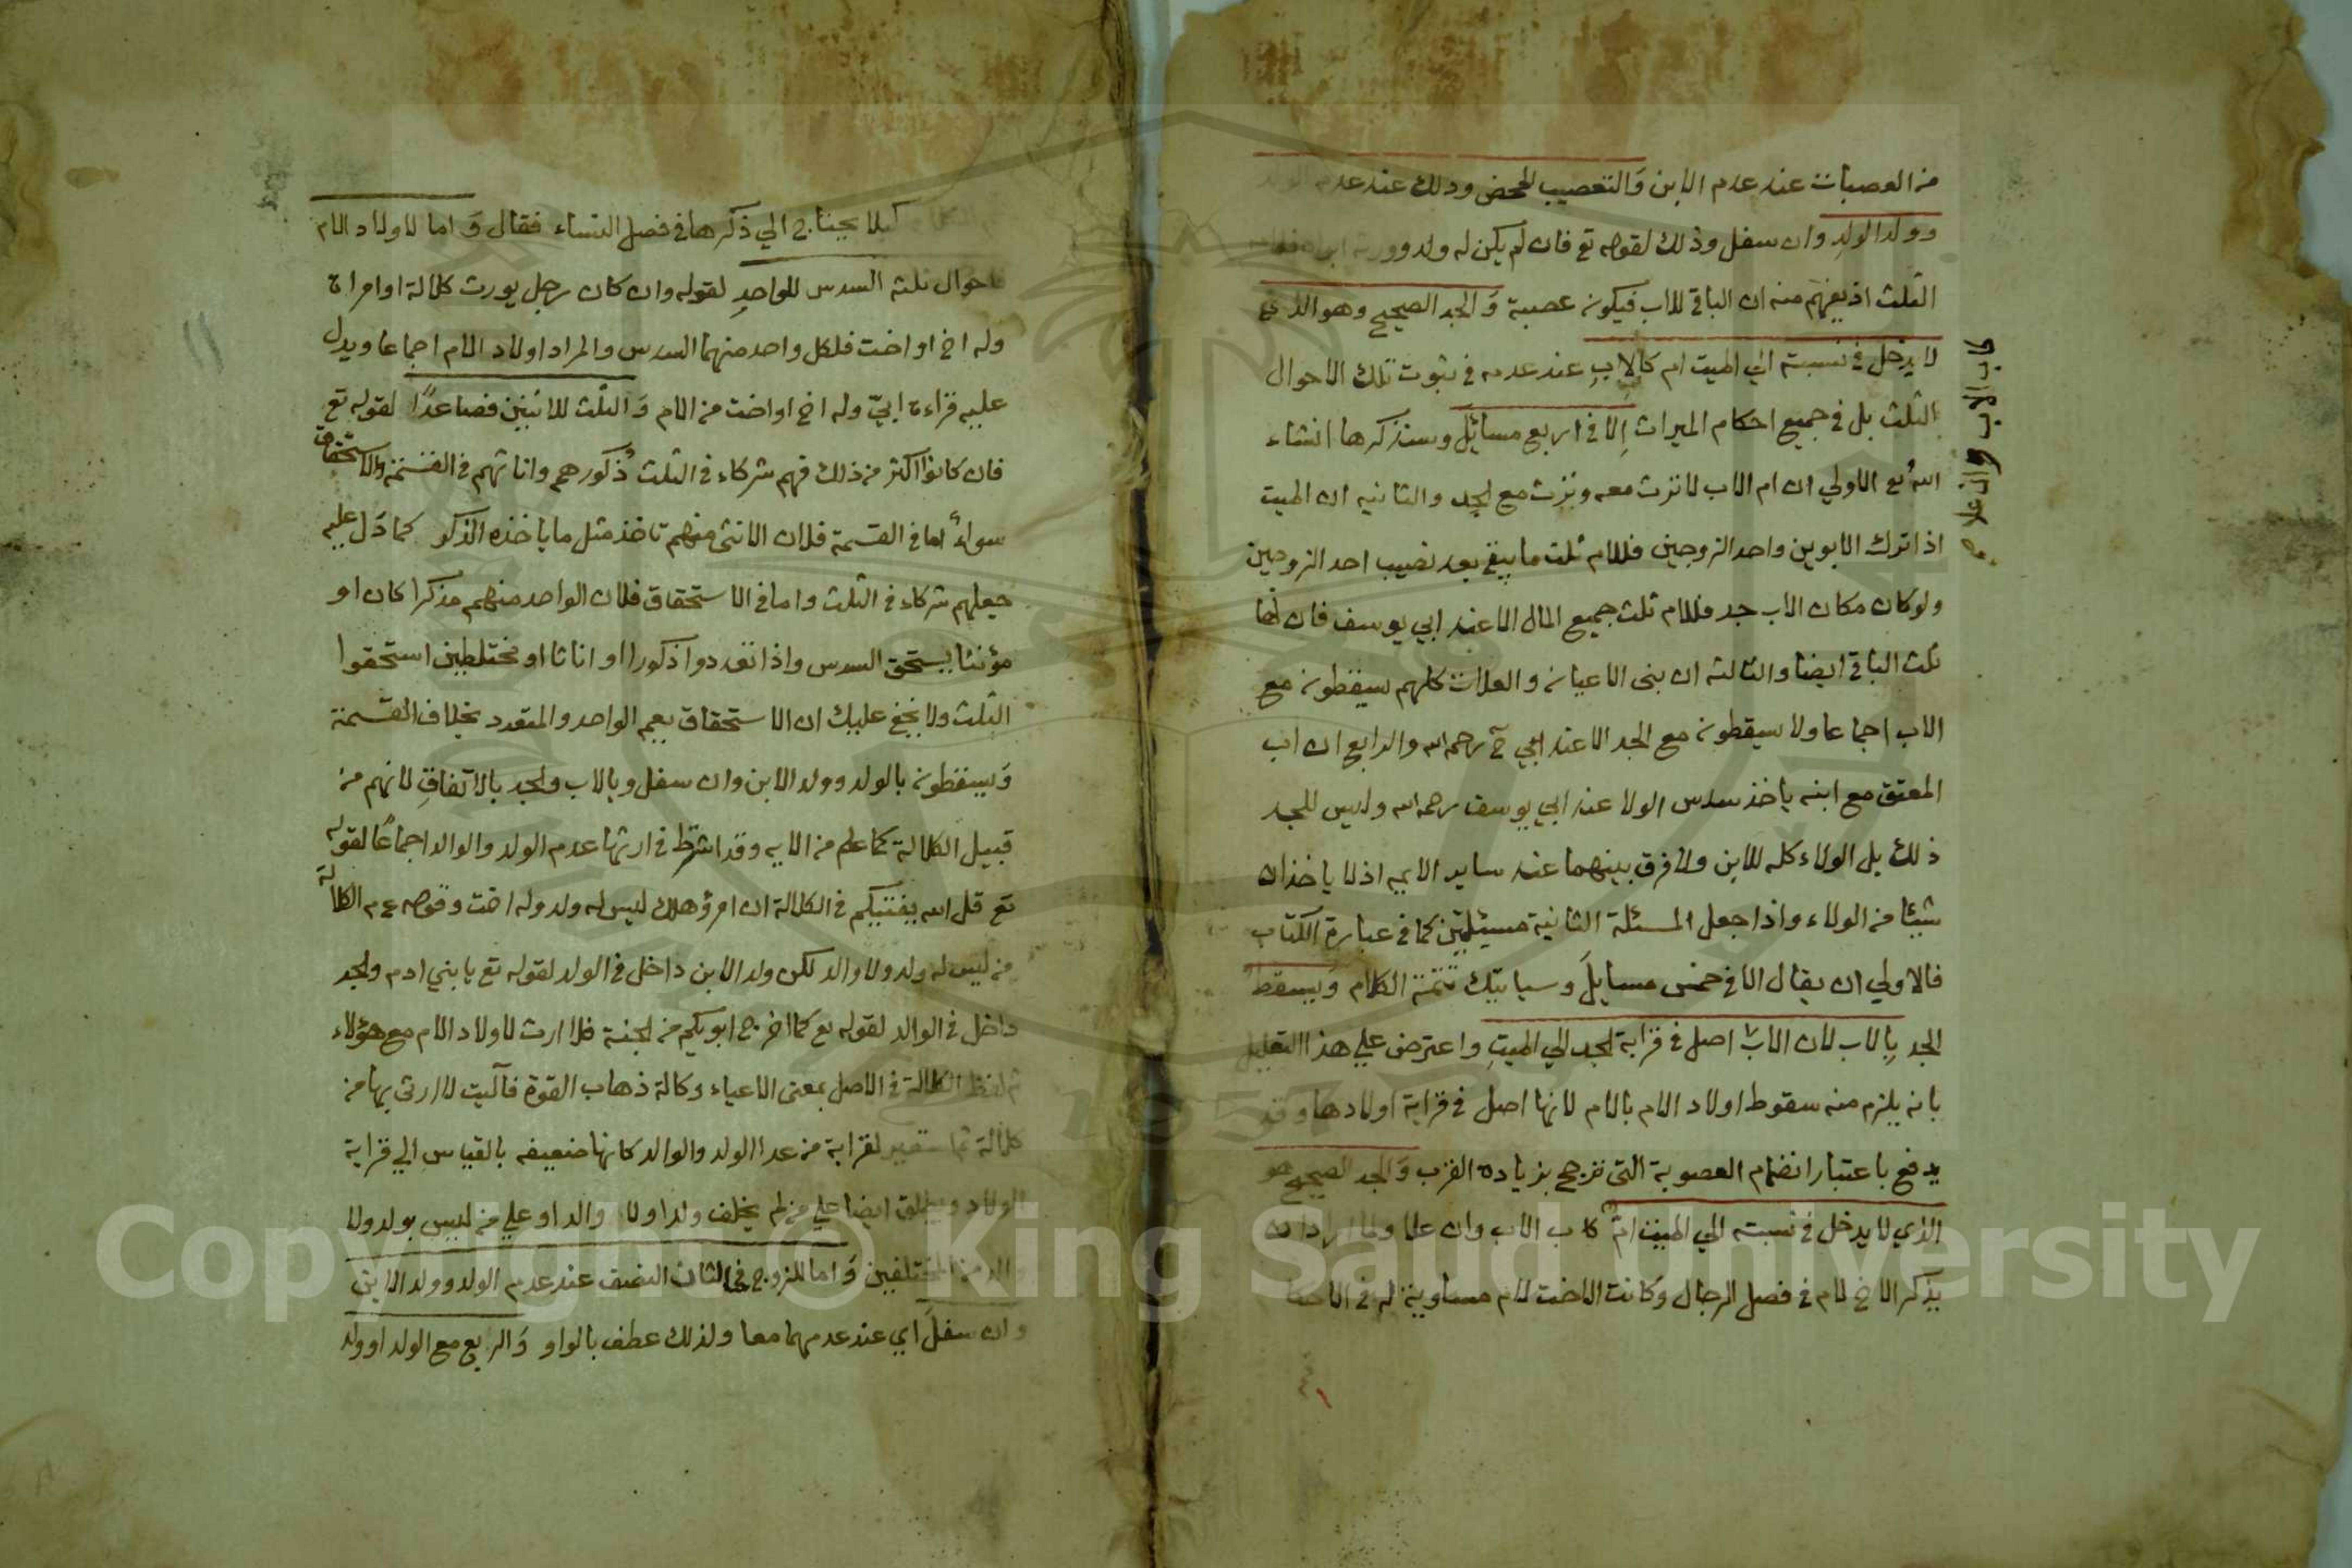 من العصبات عند عدم الابن وَالتعصيب المحض وذلك عند عدم الولد
وولد الولدِ وان سفل وذلك لقوله تع فان لم يكن له ولد وورثه ابواه فلامه
الثلث اذ يفهم منه ان الباقي للاب فيكون عصبة وَالجد الصحيح وهو الذي
لا يدخل في نسبته الي الميت ام كالابِ عند عدمه في ثبوت تلك الاحوال
الثلث بل في جميع احكام الميراث اِلا في اربع مسائل وسنذكرها انشاء
اللهُ تع الاولي ان ام الاب لا ترث معه وترث مع الجد والثانيه ان الميت
اذا ترك الابوين واحد الزوجين فللام ثلث ما يبقي بعد نصيب احد الزوجين
ولو كان مكان الاب جد فللام ثلث جميع المال الا عند ابي يوسف فان لها
ثلث الباقي ايضا والثالثه ان بنى الاعيان والعلات كلهم يسقطون مع
الاب اجماعا ولا يسقطون مع الجد الا عند ابي ح رحمه الله والرابع ان اب
المعتق مع ابنه ياخذ سدس الولا عند ابي يوسف رحمه الله وليس للجد
ذلك بل الولاء كله للابن ولا فرق بينهما عند ساير الايمه اذ لا ياخذان
شيئا من الولاء واذا جعل المسئلة الثانية مسئلتين كما في عبارة الكتاب
فالاولي ان يقال الا في خمس مسايلَ وسياتيك تتمة الكلام وَيسقط
الجد بِالاب لان الاب اصل في قرابة الجد الي الميتِ واعترض علي هذا التعليل
بانه يلزم منه سقوط اولاد الام بالام لانها اصل في قرابة اولادها وقد
يدفع باعتبار انضمام العصوبة التى ترجح بزياده القرب وَالجد الصحيح هو
الذي لا يدخل في نسبته الي الميت امٌ كاب الاب وان علا ولما اراد ان
يذكر الاخ لام في فصل الرجال وكانت الاخت لام مساوية له في الاحكا
كاب الاب وان علا صح
كيلا يحتاج الي ذكرها في فصل النساء فقال وَاما لاولاد الام
فاحوال ثلثه السدس للواحدِ لقوله وان كان رجل يورث كلالة او امراة
وله اخ او اخت فلكل واحد منهما السدس والمراد اولاد الام اجماعا ويدل
عليه قراءة ابيّ وله اخ او اخت من الام وَالثلث للاثنين فصاعدًا لقوله تع
فان كانوا اكثر من ذلك فهم شركاء في الثلث ذُكورهم واناثهم في القسمة والاستحقاق
سواءٌ اما في القسمة فلان الانثى منهم تاخذ مثل ما ياخذه الذكر كما دَل عليه
جعلهم شركاء في الثلث واما في الاستحقاق فلان الواحد منهم مذكرا كان او
مؤنثا يستحق السدس واذا تعددوا ذكورا او اناثا او مختلطين استحقوا
الثلث ولا يخفي عليك ان الاستحقاق يعم الواحد والمتعدد بخلاف القسمة
وَيسقطون بالولد وولد الابن وان سفل وبالاب والجد بالاتفاقِ لانهم من
قبيل الكلالة كما علم من الايه وقد اشترط في ارثها عدم الولد والوالد اجماعًا لقوله
تع قل الله يفتيكم في الكلالة ان امرؤ هلك ليس له ولد وله اخت وقوله عم الكلالة
من ليس له ولد ولا والد لكن ولد الابن داخل في الولد لقوله تع يا بني ادم والجد
داخل في الوالد لقوله تع كما اخرج ابويكم من الجنة فلا ارث لاولاد الام مع هؤلاء
ثم لفظ الكلالة في الاصل بمعنى الاعياء وكالة ذهاب القوة فآليت لا ارثى بها من
كلالة ثم استعير لقرابة من عدا الولد والوالد كانها ضعيفه بالقياس الي قرابة
الولاد ويطلق ايضا علي من لم يخلف ولدا ولا والدا وعلي من ليس بولد ولا
والد من المختلفين وَاما للزوج فحالتان النصف عند عدم الولد وولد الابن
وان سفلَ اي عند عدمهما معا ولذلك عطف بالواو وَالربع مع الولد او ولد
Copyright © King Saud University
1957